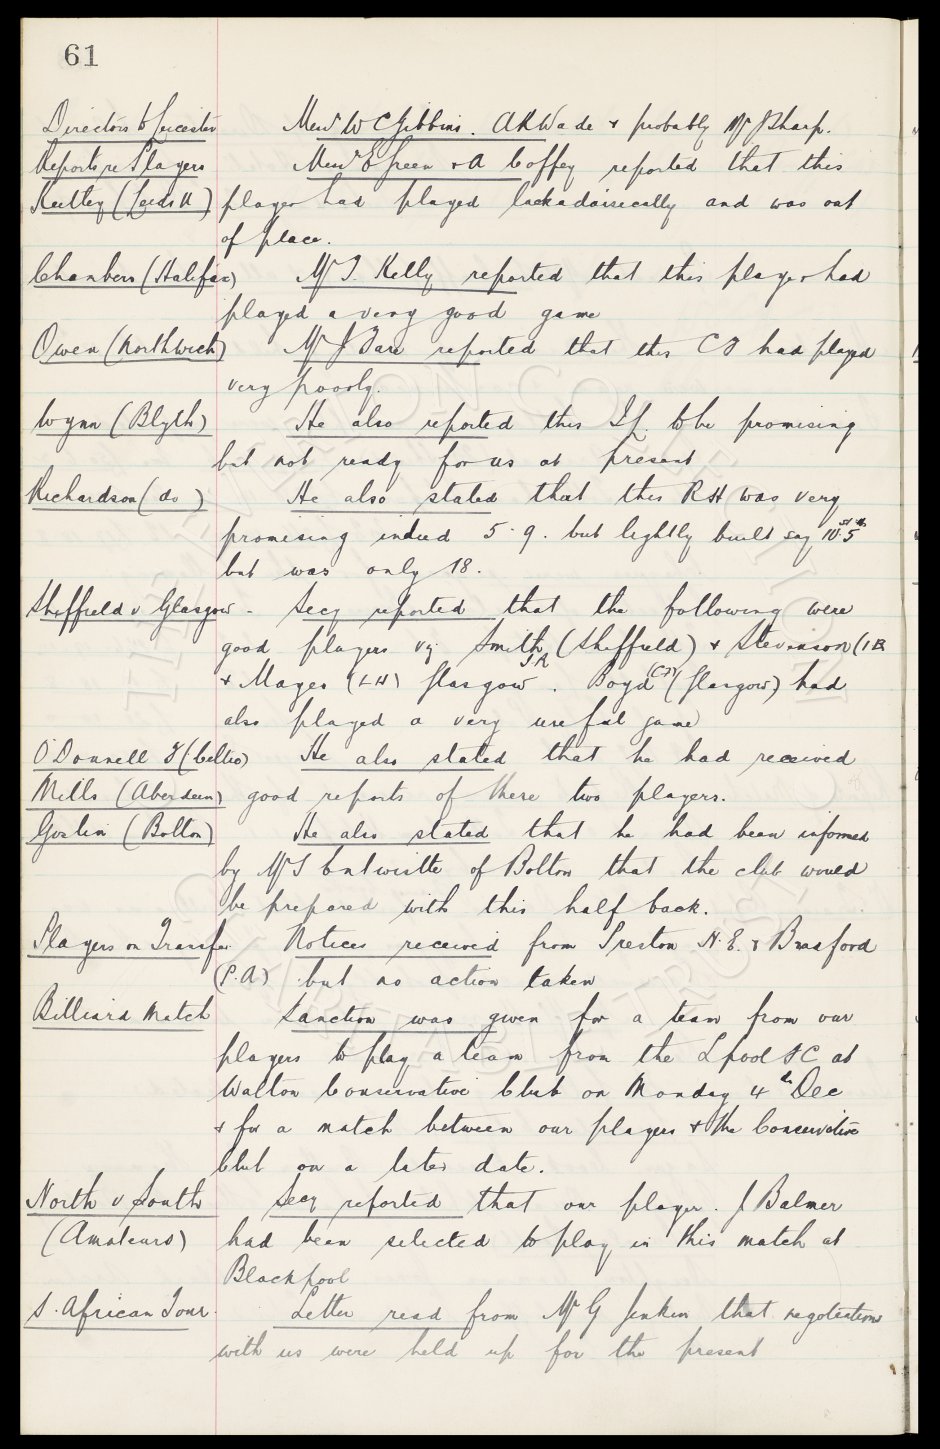 61
Directors to Leicester Messrs W C Gibbins. A R Wade & probably Mr J Sharp.
Reports re Players Messrs E Green & A Coffey reported that this
Keetley (Leeds U) player had played lackadaisically and was out
of place.
Chambers (Halifax) Mr T. Kelly reported that this player had
played a very good game
Owen (Northwich) Mr J Fare reported that this CF had played
very poorly.
Wynn (Blyth) He also reported this I.L. to be promising
but not ready for us at present
Richardson (do) He also stated that this RH was very
promising indeed 5.9. but lightly built say 10st.5lb
but was only 18.
Sheffield v Glasgow - Secy reported that the following were
good players viz Smith I.R (Sheffield) & Stevenson (IR
& Mayes (LH) Glasgow. Boyd (CF) (Glasgow) had
also played a very useful game
O'Donnell F (Celtic) He also stated that he had received
Mills (Aberdeen) good reports of these two players.
Goslin (Bolton) He also stated that he had been informed
by Mr T Entwistle of Bolton that the club would
be prepared with this half back.
Players on Transfer Notices received from Preston N.E. & Bradford
(P.A) but no action taken
Billiard Match Sanction was given for a team from our
players to play a team from the Lpool FC at
Walton Conservative Club on Monday 4th Dec
& for a match between our players & the Conservative
Club on a later date.
North v South Secy reported that our player. J Balmer
(Amateurs) had been selected to play in this match at
Blackpool
S. African Tour. Letter read from Mr G Jenkin that negotiations
with us were held up for the present